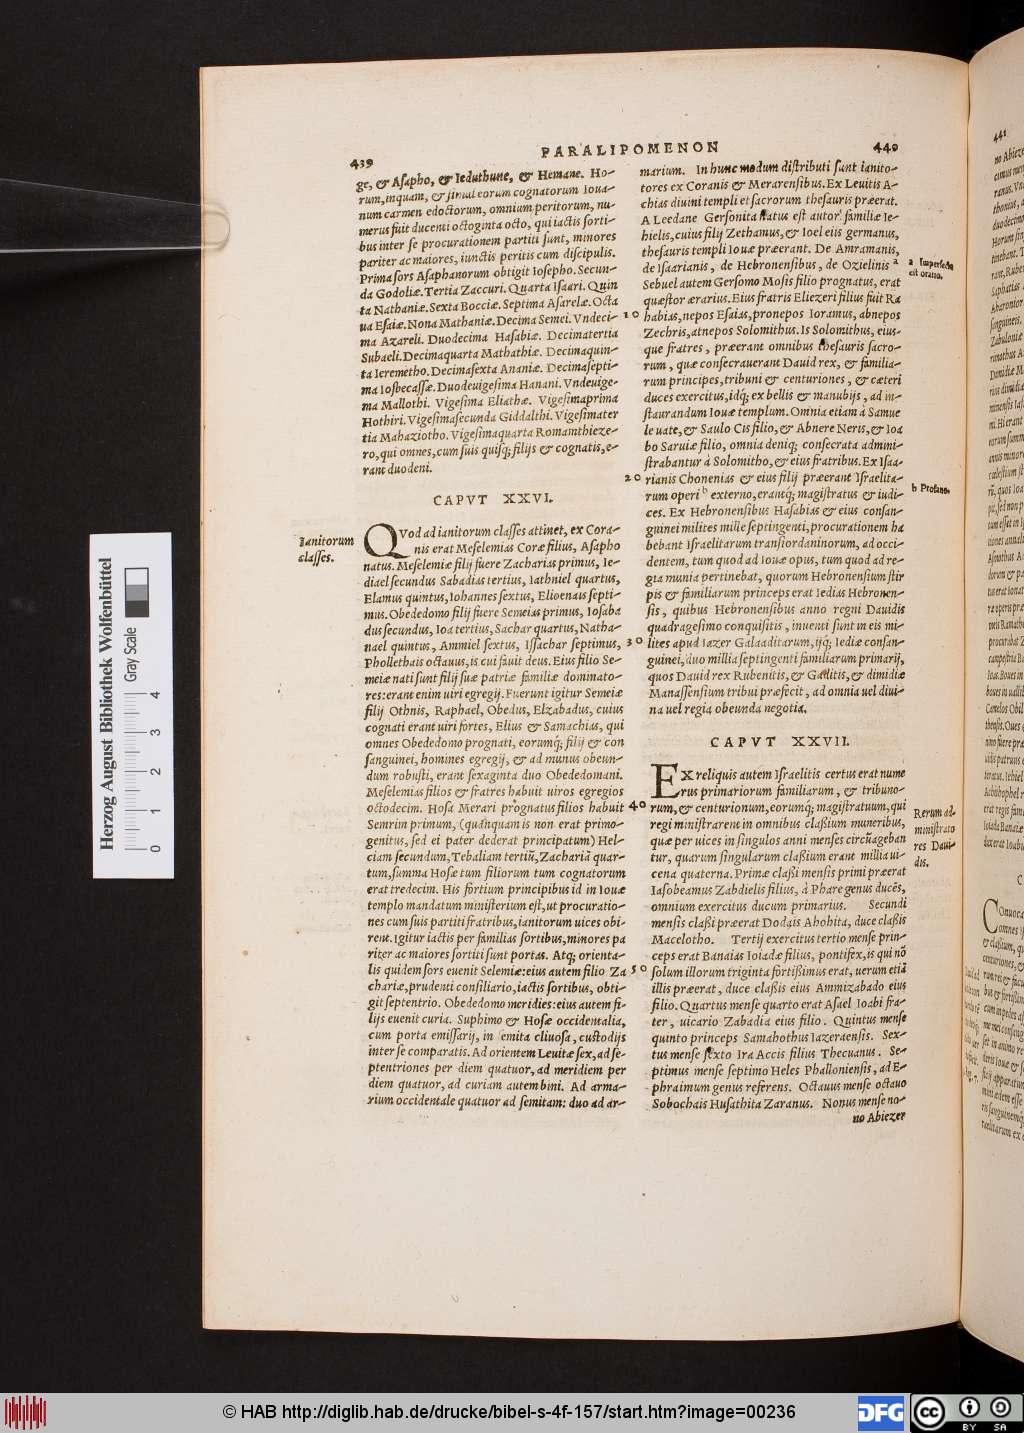 PARALIPOMENON
439
440
ge, & Asapho, & Ieduthune, & Hemane. Ho-
rum, inquam, & simul eorum cognatorum Ioua-
num carmen edoctorum, omnium peritorum, nu-
merus fuit ducenti octoginta octo, qui iactis sorti-
bus inter se procurationem partiti sunt, minores
pariter ac maiores, iunctis peritis cum discipulis.
Prima sors Asaphanorum obtigit Iosepho. Secun-
da Godoliæ. Tertia Zaccuri. Quarta Isaari. Quin
ta Nathaniæ. Sexta Bocciæ. Septima Asarelæ. Octa
ua Esaiæ. Nona Mathaniæ. Decima Semei. Vndeci-
ma Azareli. Duodecima Hasabiæ. Decimatertia
Subaeli. Decimaquarta Mathathiæ. Decimaquin-
ta Ieremetho. Decimasexta Ananiæ. Decimasepti-
ma Iosbecassæ. Duodeuigesima Hanani. Vndeuige-
ma Mallothi. Vigesima Eliathæ. Vigesimaprima
Hothiri. Vigesimasecunda Giddalthi. Vigesimater
tia Mahaziotho. Vigesimaquarta Romamthieze-
ro, qui omnes, cum suis quisq; filijs & cognatis, e-
rant duodeni.
CAPVT XXVI.
Ianitorum
classes.
QVod ad ianitorum classes attinet, ex Cora-
nis erat Meselemias Coræ filius, Asapho
natus. Meselemiæ filij fuere Zacharias primus, Ie-
diael secundus Sabadias tertius, Iathniel quartus,
Elamus quintus, Iohannes sextus, Elioenais septi-
mus. Obededomo filij fuere Semeias primus, Iosaba
dus secundus, Ioa tertius, Sachar quartus, Natha-
nael quintus, Ammiel sextus, Issachar septimus,
Phollethais octauus, is cui fauit deus. Eius filio Se-
meiæ nati sunt filij suæ patriæ familiæ dominato-
res: erant enim uiri egregij. Fuerunt igitur Semeiæ
filij Othnis, Raphael, Obedus, Elzabadus, cuius
cognati erant uiri fortes, Elius & Samachias, qui
omnes Obededomo prognati, eorumq; filij & con
sanguinei, homines egregij, & ad munus obeun-
dum robusti, erant sexaginta duo Obededomani.
Meselemias filios & fratres habuit uiros egregios
octodecim. Hosa Merari prognatus filios habuit
Semrim primum, (quãnquam is non erat primo-
genitus, sed ei pater dederat principatum) Hel-
ciam secundum, Tebaliam tertiũ, Zachariã quar-
tum, summa Hosæ tum filiorum tum cognatorum
erat tredecim. His fortium principibus id in Iouæ
templo mandatum ministerium est, ut procuratio-
nes cum suis partiti fratribus, ianitorum uices obi-
rent. Igitur iactis per familias sortibus, minores pa
riter ac maiores sortiti sunt portas. Atq; orienta-
lis quidem sors euenit Selemiæ: eius autem filio Za
chariæ, prudenti consiliario, iactis sortibus, obti-
git septentrio. Obededomo meridies: eius autem fi-
lijs euenit curia. Suphimo & Hosæ occidentalia,
cum porta emissarij, in semita cliuosa, custodijs
inter se comparatis. Ad orientem Leuitæ sex, ad se-
ptentriones per diem quatuor, ad meridiem per
diem quatuor, ad curiam autem bini. Ad arma-
rium occidentale quatuor ad semitam: duo ad ar-
10
20
30
40
50
marium. In hunc modum distributi sunt ianito-
tores ex Coranis & Merarensibus. Ex Leuitis A-
chias diuini templi et sacrorum thesauris præerat.
A Leedane Gersonita natus est autor familiæ Ie-
hielis, cuius filij Zethamus, & Ioel eiis germanus,
thesauris templi Iouæ præerant. De Amramanis,
de Isaarianis, de Hebronensibus, de Ozielinis a
Sebuel autem Gersomo Mosis filio prognatus, erat
quæstor ærarius. Eius fratris Eliezeri filius fuit Ra
habias, nepos Esaias, pronepos Ioramus, abnepos
Zechris, atnepos Solomithus. Is Solomithus, eius-
que fratres, præerant omnibus thesauris sacro-
rum, quæ consecrauerant Dauid rex, & familia-
rum principes, tribuni & centuriones, & cæteri
duces exercitus, idq; ex bellis & manubijs, ad in-
staurandum Iouæ templum. Omnia etiam à Samue
le uate, & Saulo Cis filio, & Abnere Neris, & Ioa
bo Saruiæ filio, omnia deniq; consecrata admini-
strabantur à Solomitho, & eius fratribus. Ex Isaa-
rianis Chonenias & eius filij præerant Israelita-
rum operi b externo, erantq; magistratus & iudi-
ces. Ex Hebronensibus Hasabias & eius consan-
guinei milites mille septingenti, procurationem ha
bebant Israelitarum transiordaninorum, ad occi-
dentem, tum quod ad Iouæ opus, tum quod ad re-
gia munia pertinebat, quorum Hebronensium stir
pis & familiarum princeps erat Iedias Hebronen-
sis, quibus Hebronensibus anno regni Dauidis
quadragesimo conquisitis, inuenti sunt in eis mi-
lites apud Iazer Galaaditarum, ijq; Iediæ consan-
guinei, duo millia septingenti familiarum primarij,
quos Dauid rex Rubenitis, & Gaditis, & dimidiæ
Manassensium tribui præfecit, ad omnia uel diui-
na uel regia obeunda negotia.
a Imperfecta
est oratio.
b Profano.
CAPVT XXVII.
EX reliquis autem Israelitis certus erat nume
rus primariorum familiarum, & tribuno-
rum, & centurionum, eorumq; magistratuum, qui
regi ministrarent in omnibus classium muneribus,
quæ per uices in singulos anni menses circũageban
tur, quarum singularum classium erant millia ui-
cena quaterna. Primæ classi mensis primi præerat
Iasobeamus Zabdielis filius, à Phare genus ducẽs,
omnium exercitus ducum primarius. Secundi
mensis classi præerat Dodais Ahohita, duce classis
Macelotho. Tertij exercitus tertio mense prin-
ceps erat Banaias Ioiadæ filius, pontifex, is qui nõ
solum illorum triginta fortissimus erat, uerum etiã
illis præerat, duce classis eius Ammizabado eius
filio. Quartus mense quarto erat Asael Ioabi fra-
ter, uicario Zabadia eius filio. Quintus mense
quinto princeps Samahothus Iazeraensis. Sex-
tus mense sexto Ira Accis filius Thecuanus. Se-
ptimus mense septimo Heles Phalloniensis, ad E-
phraimum genus referens. Octauus mense octauo
Sobochais Husathita Zaranus. Nonus mense no-
no Abiezer
Rerum ad-
ministrato
res Daui-
dis.
441
Herzog August Bibliothek Wolfenbüttel
Gray Scale
0 1 2 3 4
© HAB http://diglib.hab.de/drucke/bibel-s-4f-157/start.htm?image=00236
DFG
cc
BY SA